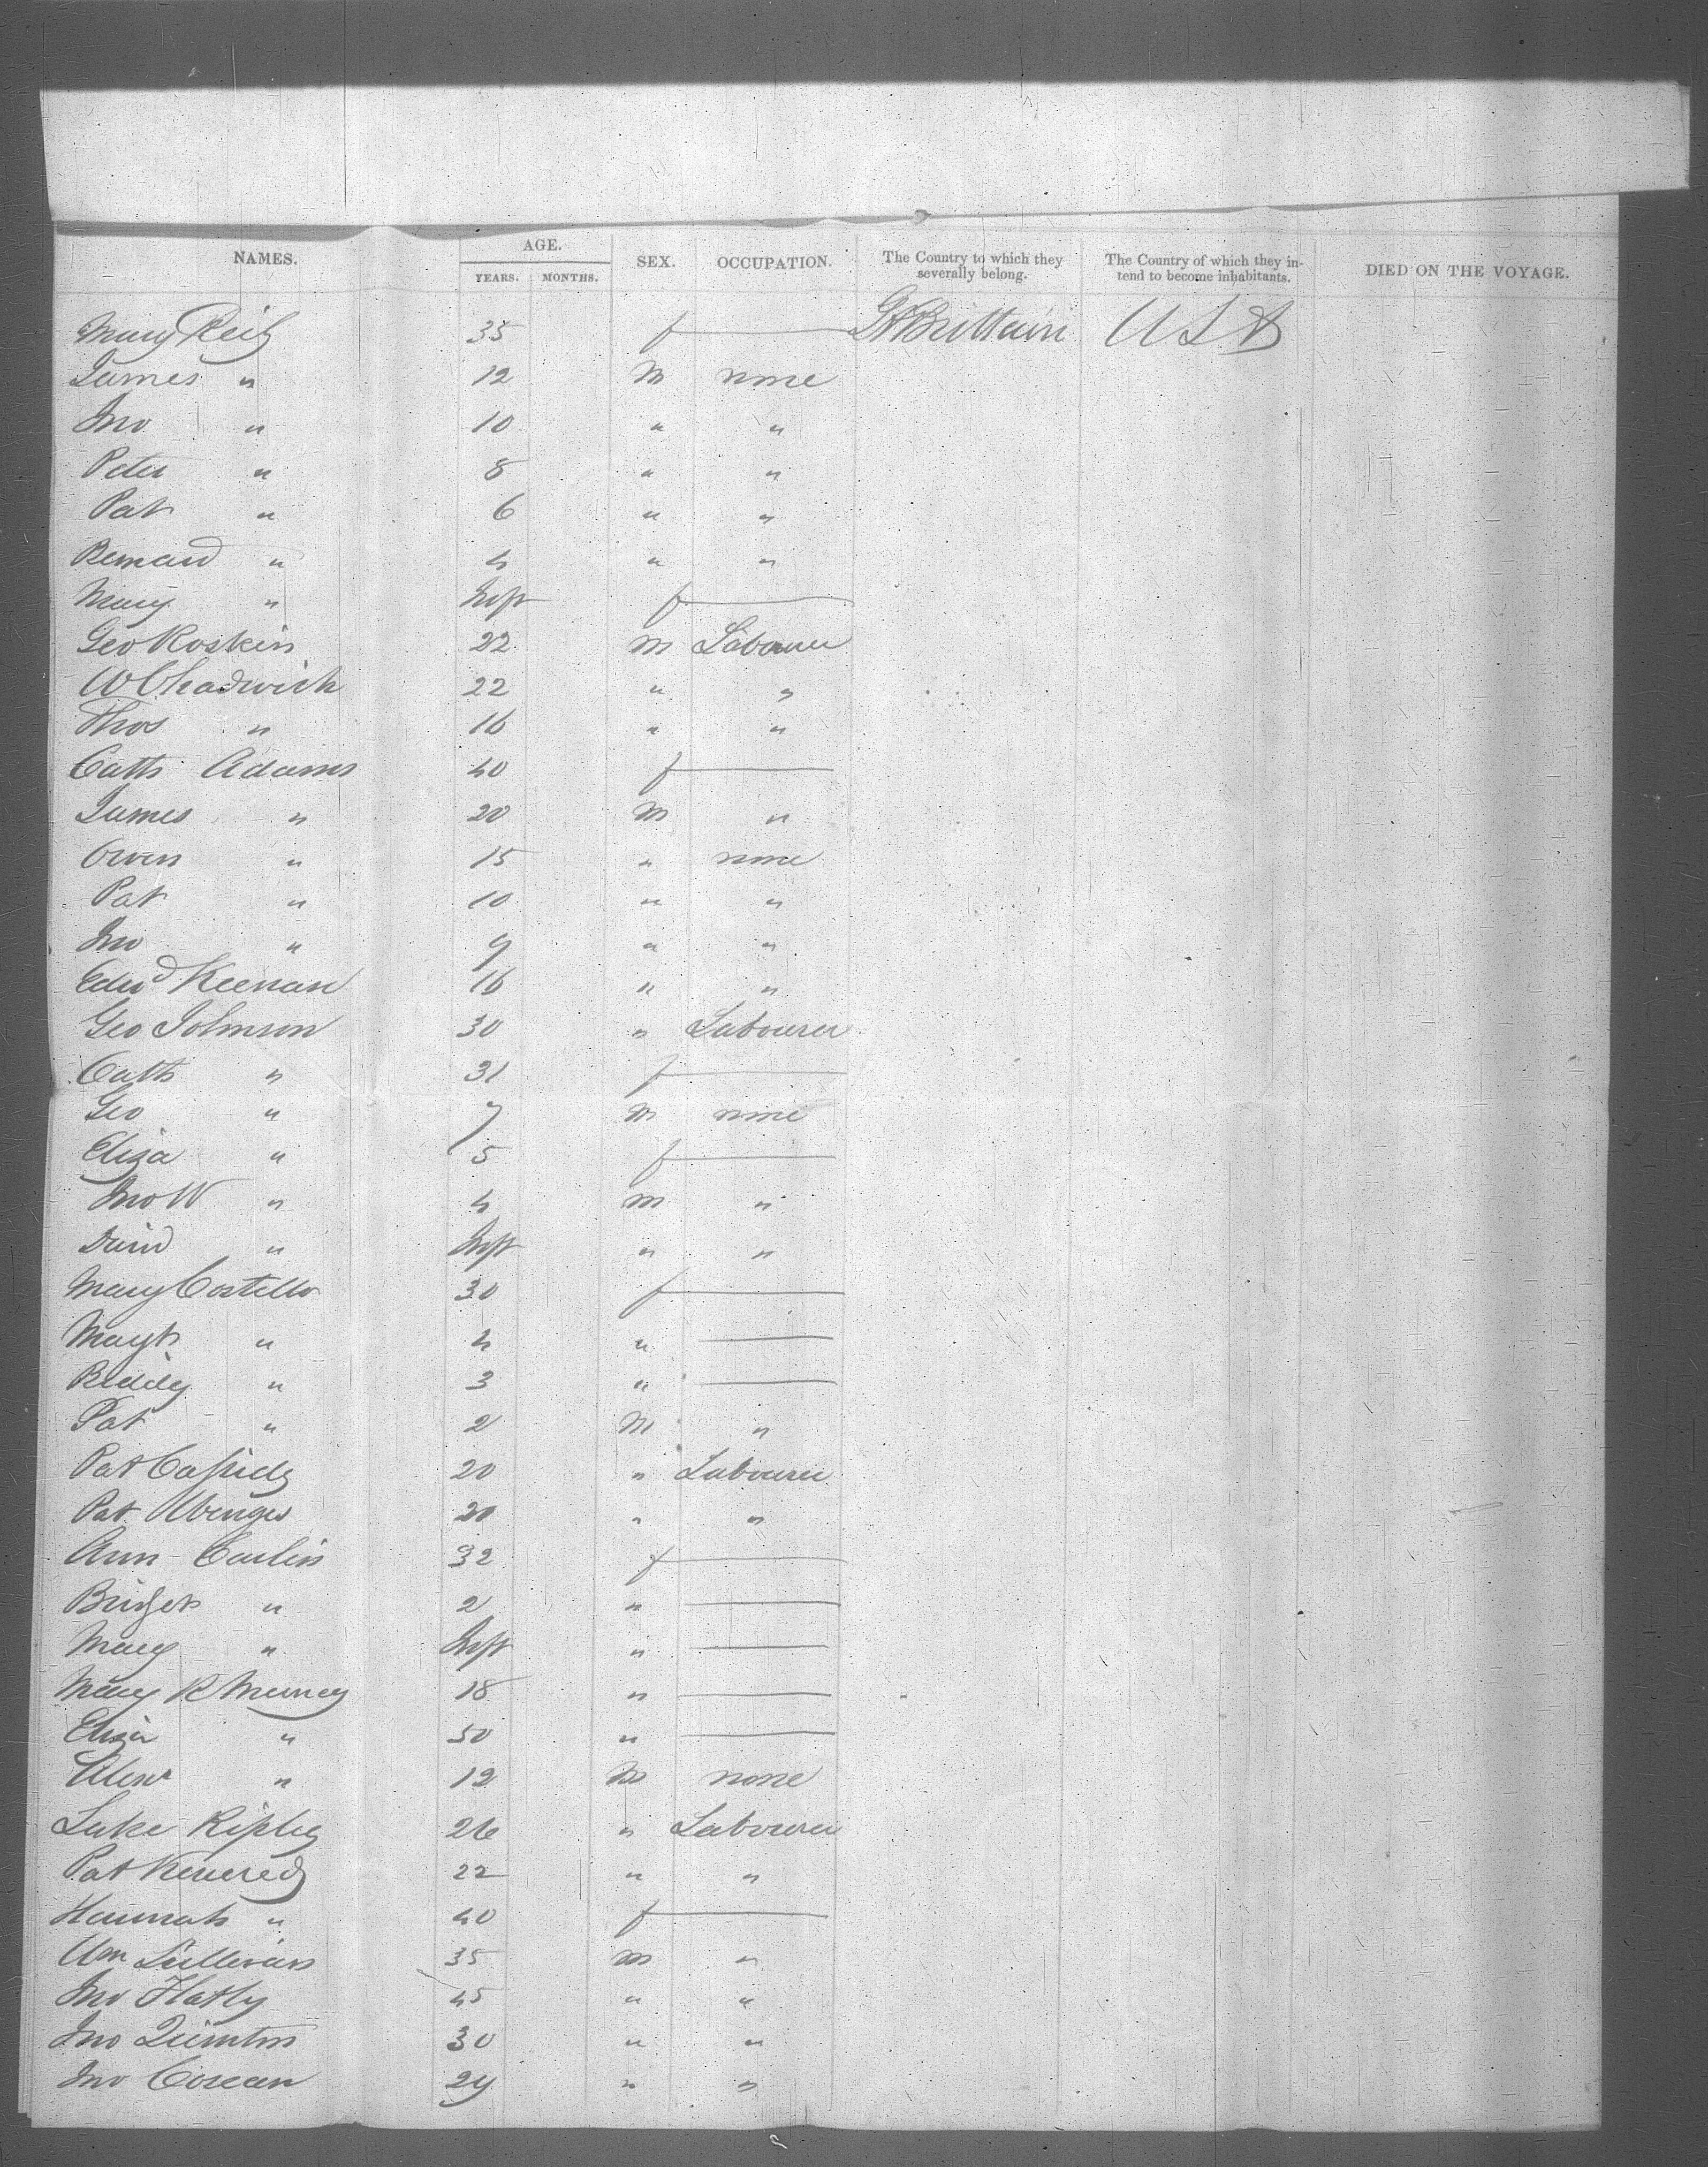 NAMES. AGE. YEARS. MONTHS. SEX. OCCUPATION. The Country to which they severally belong. The Country of which they intend to become inhabitants. DIED ON THE VOYAGE.
Mary Reily 35 f Gt Brittain U S A
James " 12 M none
Jno " 10 " "
Peter " 8 " "
Pat " 6 " "
Bernard " 4 " "
Mary " Inft f
Geo Roskin 22 M Labourer
W Chadwick 22 " "
Thos " 16 " "
Cath Adams 40 f
James " 20 M "
Owen " 15 " none
Pat " 10 " "
Jno " 9 " "
Edwd Keenan 16 " "
Geo Johnson 30 " Labourer
Cath " 31 f
Geo " 7 M none
Eliza " 5 f
Jno W " 4 M "
David " Inft " "
Mary Costello 30 f
Magt " 4 "
Biddy " 3 "
Pat " 2 M "
Pat Cassidy 20 " Labourer
Pat 20 " "
Ann Carlin 32 f
Bridget " 2 "
Mary " Inft "
Mary 18 "
Eliza " 50 "
Alexr " 12 M none
Luke Ripley 26 " Labourer
Pat Kennedy 22 " "
Hannah " 40 f
Wm Sullivan 35 M "
Jno Flatly 45 " "
Jno Quinton 30 " "
Jno 24 " "